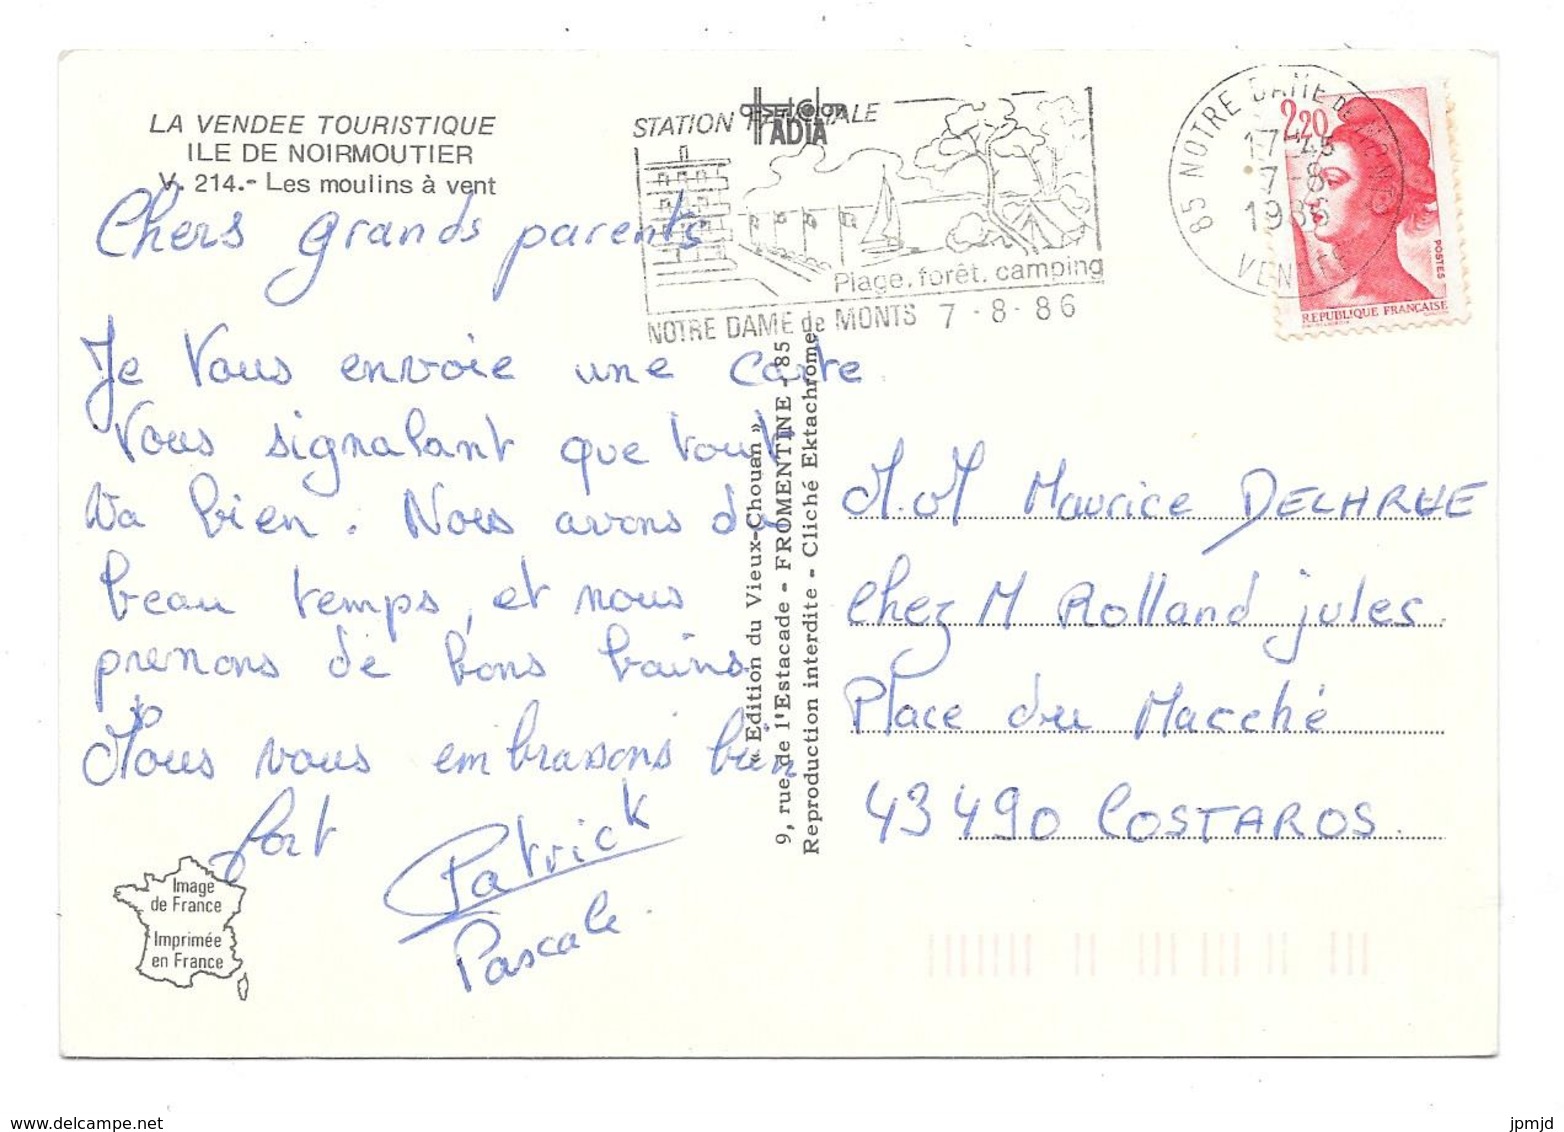 LA VENDEE TOURISTIQUE
ILE DE NOIRMOUTIER
V. 214.- Les moulins à vent
Chers grands parents
Je vous envoie une carte
vous signalant que tout
va bien. Nous avons du
beau temps, et nous
prenons de bons bains
Nous vous embrassons bien
fort
Patrick
Pascale.
Image
de France
Imprimée
en France
offsetcolor
ADIA
STATION
Plage. forêt. camping
NOTRE DAME de MONTS 7 - 8 - 86
85 NOTRE DAME DE MONTS
17 45
7-8
1986
VENDEE
2,20
POSTES
REPUBLIQUE FRANÇAISE
« Edition du Vieux-Chouan »
9, rue de l'Estacade - FROMENTINE - 85
Reproduction interdite - Cliché Ektachrome
M. M Maurice DELARUE
chez M Rolland jules.
Place du Marché
43490 COSTAROS.
www.delcampe.net
jpmjd